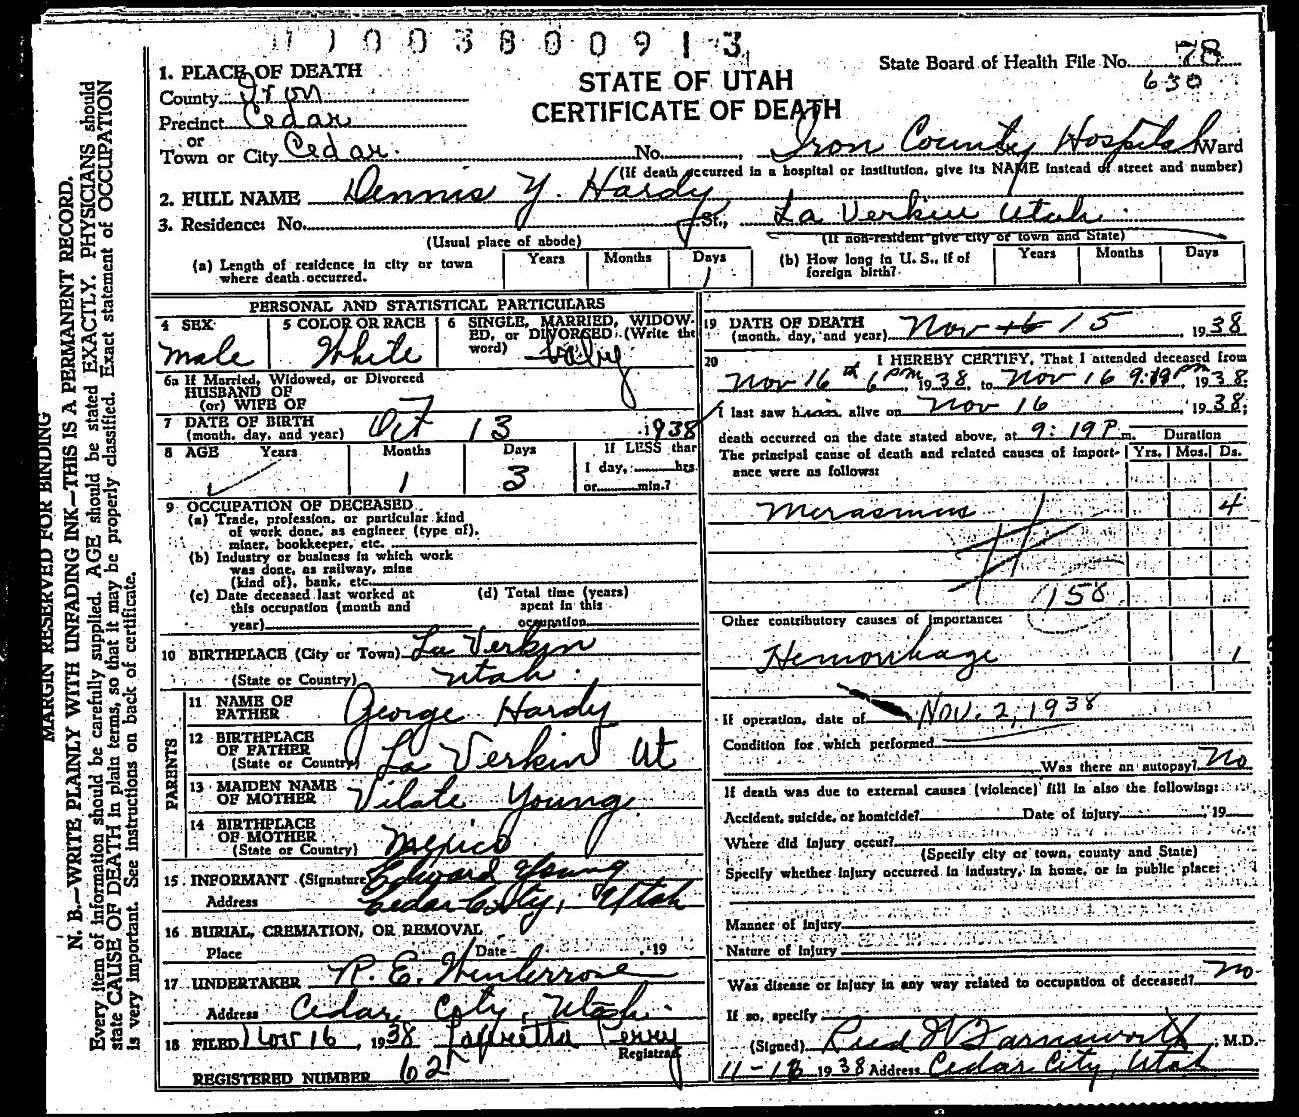 1 0 0 3 8 0 0 9 1 3
State Board of Health File No. 78
630
STATE OF UTAH
CERTIFICATE OF DEATH
1. PLACE OF DEATH
County Iron
Precinct Cedar
or
Town or City Cedar. No. , Iron County Hospital Ward
(If death occurred in a hospital or institution, give its NAME instead of street and number)
2. FULL NAME Dennis Y. Hardy
3. Residence: No. St., La Verkin Utah.
(Usual place of abode) (If non-resident give city or town and State)
(a) Length of residence in city or town where death occurred. Years Months Days 1
(b) How long in U. S., if of foreign birth? Years Months Days
PERSONAL AND STATISTICAL PARTICULARS
4 SEX male
5 COLOR OR RACE White
6 SINGLE, MARRIED, WIDOWED, or DIVORCED (Write the word) baby
6a If Married, Widowed, or Divorced
HUSBAND OF
(or) WIFE OF
7 DATE OF BIRTH
(month, day, and year) Oct 13 1938
8 AGE Years Months 1 Days 3 If LESS than
1 day, hrs.
or min.?
9 OCCUPATION OF DECEASED
(a) Trade, profession, or particular kind
of work done, as engineer (type of),
miner, bookkeeper, etc.
(b) Industry or business in which work
was done, as railway, mine
(kind of), bank, etc.
(c) Date deceased last worked at
this occupation (month and
year)
(d) Total time (years)
spent in this
occupation
10 BIRTHPLACE (City or Town) La Verkin
(State or Country) Utah
PARENTS
11 NAME OF
FATHER George Hardy
12 BIRTHPLACE
OF FATHER
(State or Country) La Verkin Ut
13 MAIDEN NAME
OF MOTHER Vilate Young
14 BIRTHPLACE
OF MOTHER
(State or Country) Mexico
15 INFORMANT (Signature) Edward Young
Address Cedar City, Utah
16 BURIAL, CREMATION, OR REMOVAL
Place Date , 19
17 UNDERTAKER R. E. Winterrose
Address Cedar City, Utah
18 FILED Nov 16, 1938 Perry
Registrar
REGISTERED NUMBER 62
19 DATE OF DEATH
(month, day, and year) Nov 16 15 1938
20 I HEREBY CERTIFY, That I attended deceased from
Nov 16th 6 pm, 1938, to Nov 16 9:19 pm, 1938.
I last saw him alive on Nov 16, 1938;
death occurred on the date stated above, at 9:19 P. m.
The principal cause of death and related causes of importance were as follows:
Duration
Yrs. Mos. Ds.
Merasmus 4
158
Other contributory causes of importance:
Hemorrhage 1
If operation, date of Nov. 2, 1938
Condition for which performed
Was there an autopsy? No
If death was due to external causes (violence) fill in also the following:
Accident, suicide, or homicide? Date of injury , 19
Where did injury occur?
(Specify city or town, county and State)
Specify whether injury occurred in industry, in home, or in public place:
Manner of Injury
Nature of Injury
Was disease or injury in any way related to occupation of deceased? no
If so, specify
(Signed) Reed W Farnsworth, M.D.
1938 Address Cedar City, Utah
MARGIN RESERVED FOR BINDING
N. B.—WRITE PLAINLY WITH UNFADING INK—THIS IS A PERMANENT RECORD.
Every item of information should be carefully supplied. AGE should be stated EXACTLY. PHYSICIANS should
state CAUSE OF DEATH in plain terms, so that it may be properly classified. Exact statement of OCCUPATION
is very important. See instructions on back of certificate.